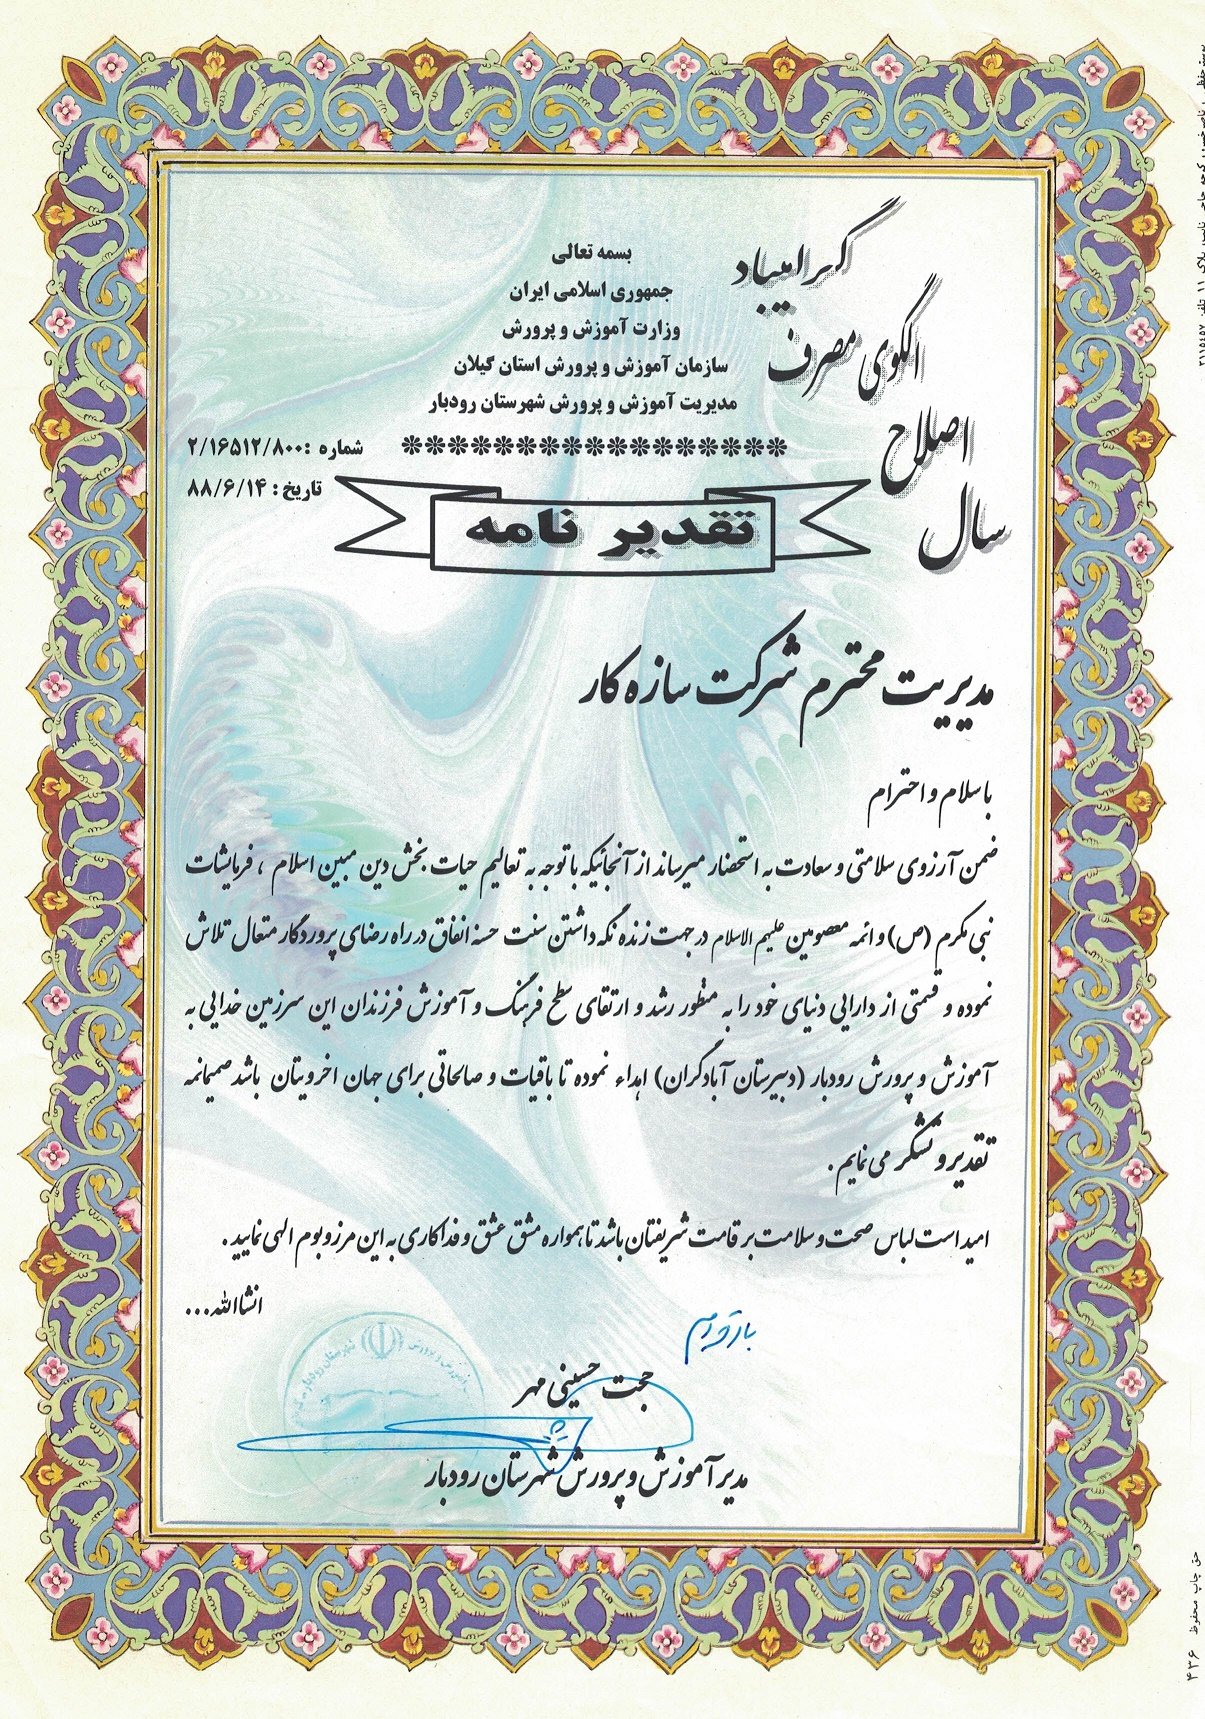 بسمه تعالی
جمهوری اسلامی ایران
وزارت آموزش و پرورش
سازمان آموزش و پرورش استان گیلان
مدیریت آموزش و پرورش شهرستان رودبار
سال
اصلاح
الگوی مصرف
گرامیباد
******************
شماره :۲/۱۶۵۱۲/۸۰۰
تاریخ : ۸۸/۶/۱۴
تقدیر نامه
مدیریت محترم شرکت سازه کار
با سلام و احترام
ضمن آرزوی سلامتی و سعادت به استحضار میرساند از آنجائیکه با توجه به تعالیم حیات بخش دین مبین اسلام ، فرمایشات
نبی مکرم (ص) و ائمه معصومین علیهم الاسلام در جهت زنده نگه داشتن سنت حسنه انفاق در راه رضای پروردگار متعال تلاش
نموده و قسمتی از دارایی دنیای خود را به منظور رشد و ارتقای سطح فرهنگ و آموزش فرزندان این سرزمین خدایی به
آموزش و پرورش رودبار (دبیرستان آبادگران) اهداء نموده تا باقیات و صالحاتی برای جهان اخرویتان باشد صمیمانه
تقدیر و تشکر می نمایم .
امید است لباس صحت و سلامت بر قامت شریفتان باشد تا همواره مشق عشق و فداکاری به این مرز و بوم الهی نمایید .
انشاالله...
حجت حسینی مهر
مدیر آموزش و پرورش شهرستان رودبار
حق چاپ محفوظ
۴۳۶